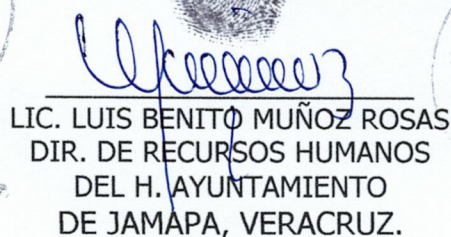 LIC. LUIS BENITO MUÑOZ ROSAS
DIR. DE RECURSOS HUMANOS
DEL H. AYUNTAMIENTO
DE JAMAPA, VERACRUZ.